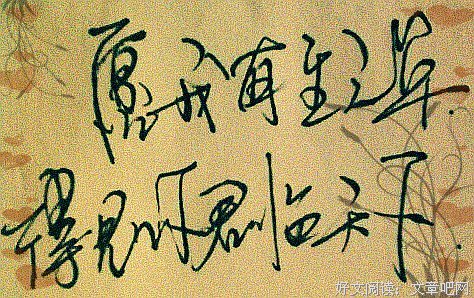 愿我有生之年.
得见你君临天下.
好文阅读：文章吧网